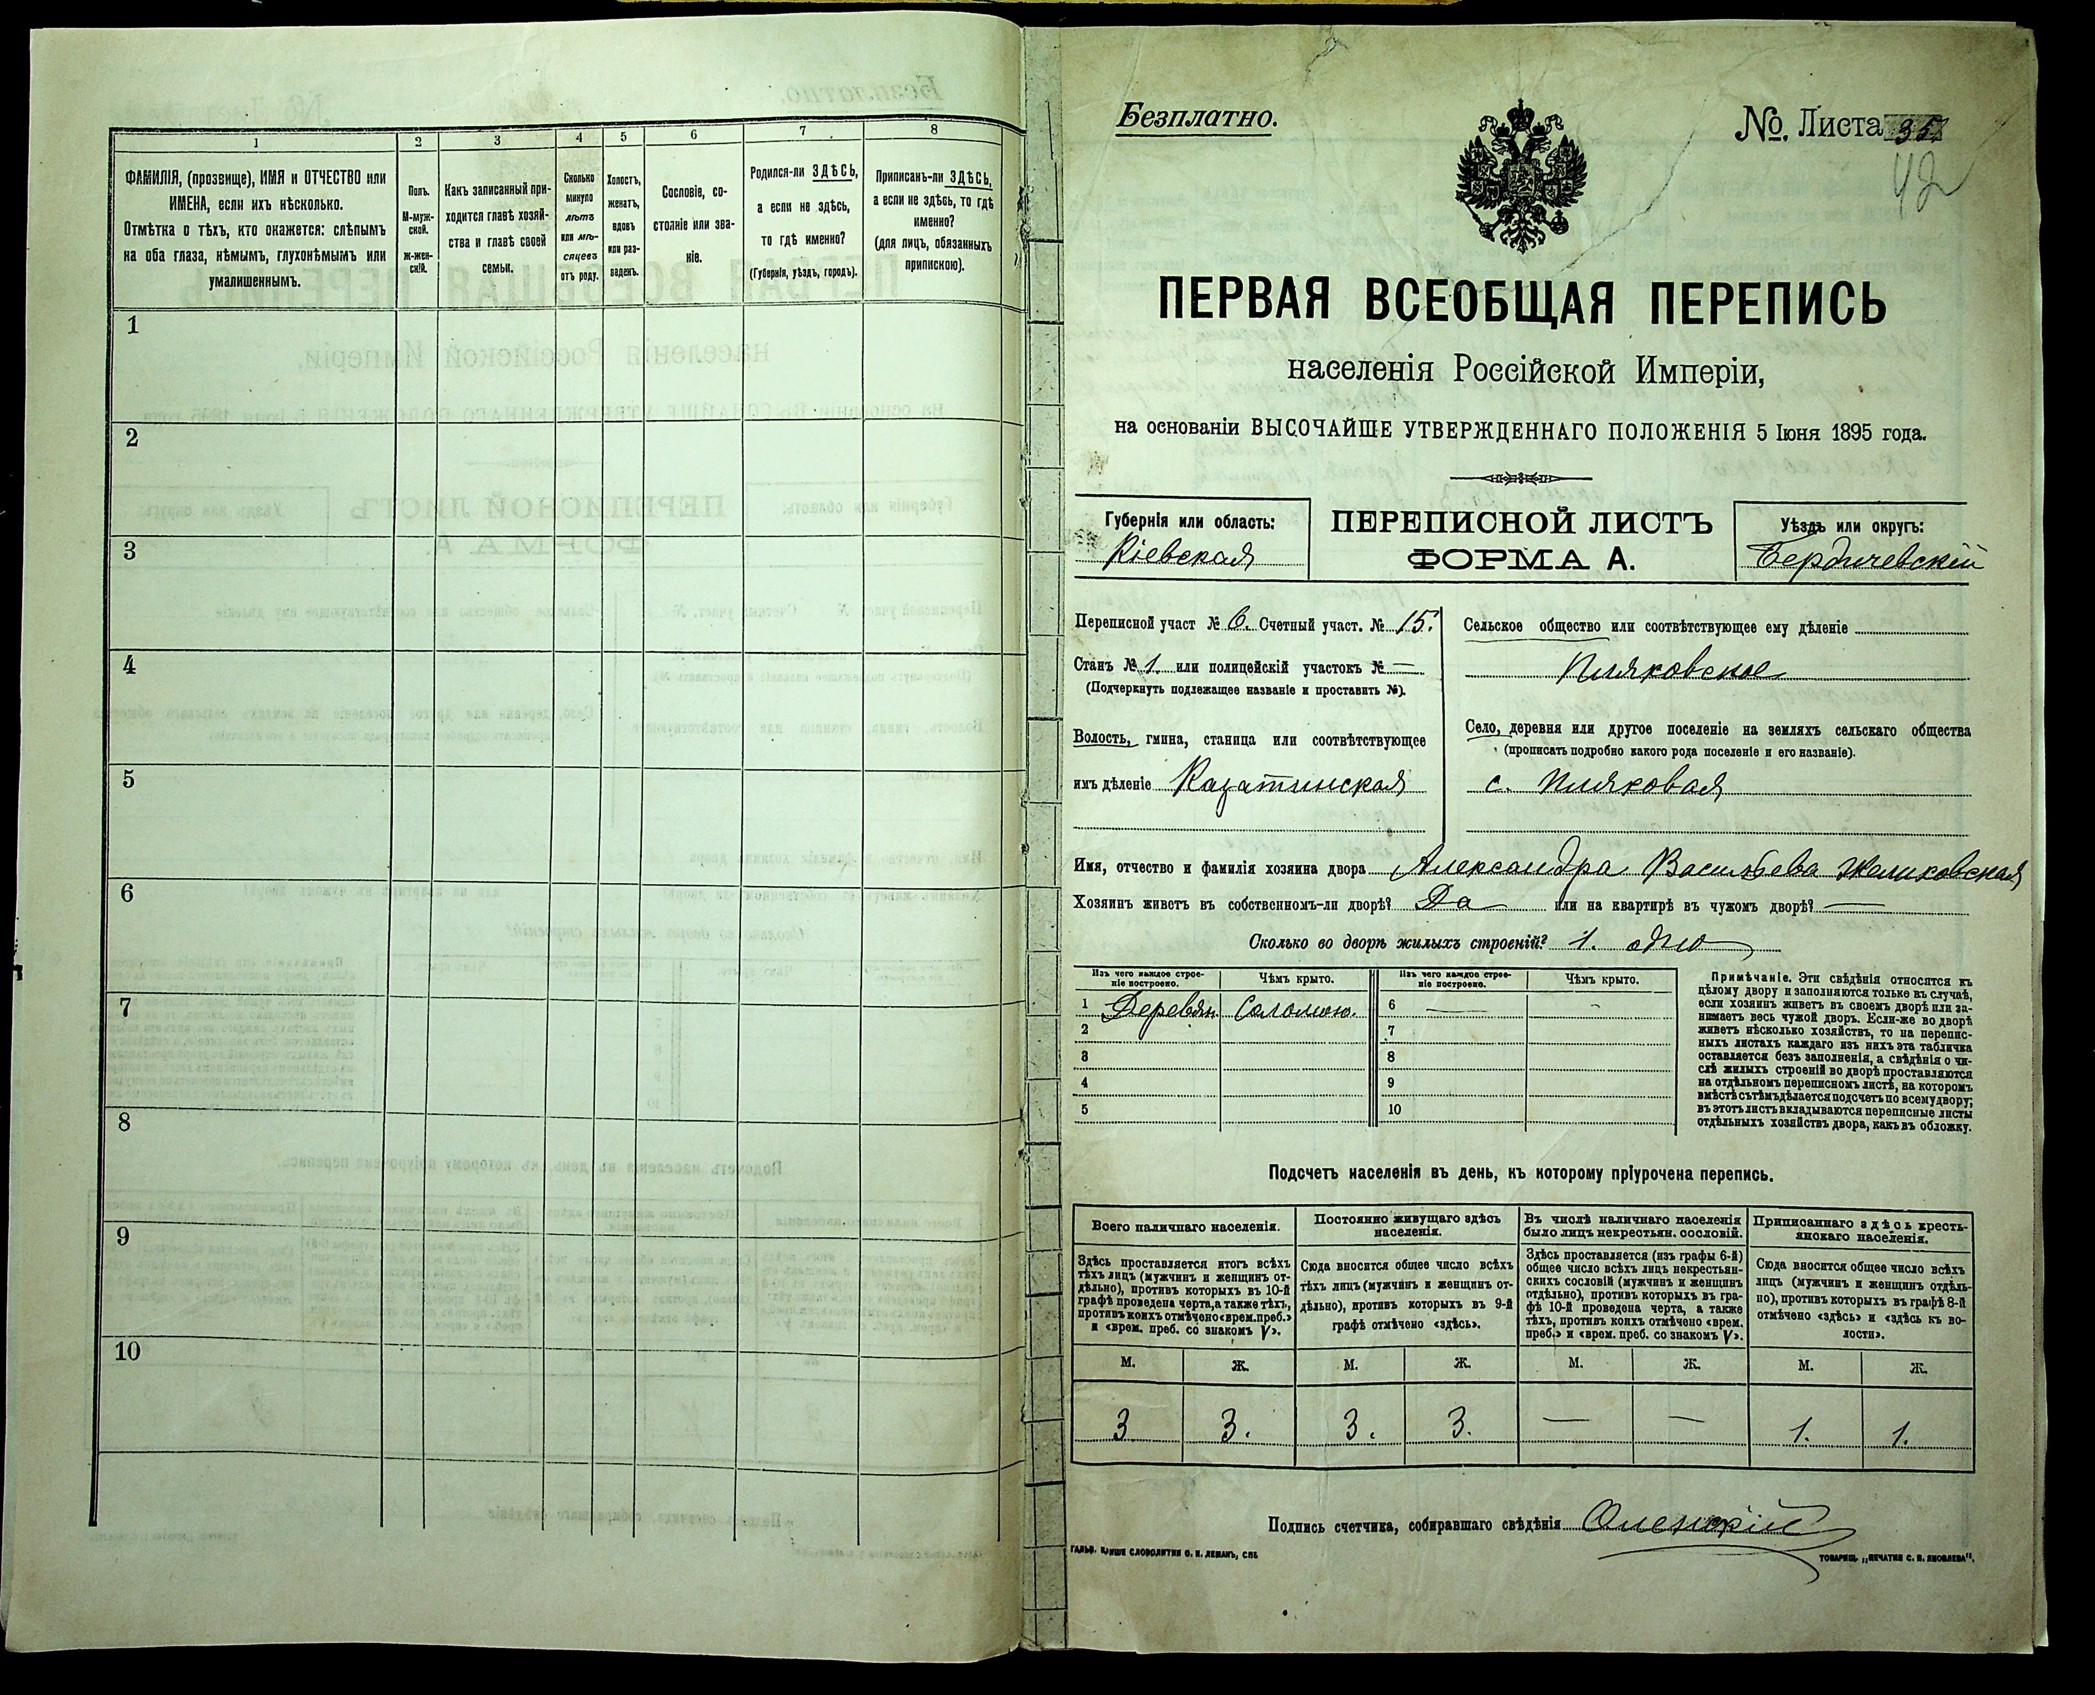 1 2 3 4 5 6 7 8
ФАМИЛІЯ, (прозвище), ИМЯ и ОТЧЕСТВО или
ИМЕНА, если ихъ нѣсколько.
Отмѣтка о тѣхъ, кто окажется: слѣпымъ
на оба глаза, нѣмымъ, глухонѣмымъ или
умалишеннымъ.
Полъ.
М-муж-
ской.
ж-жен-
скій.
Какъ записанный при-
ходится главѣ хозяй-
ства и главѣ своей
семьи.
Сколько
минуло
лѣтъ
или мѣ-
сяцевъ
отъ роду.
Холостъ,
женатъ,
вдовъ
или раз-
веденъ.
Сословіе, со-
стояніе или зва-
ніе.
Родился-ли ЗДѢСЬ,
а если не здѣсь,
то гдѣ именно?
(Губернія, уѣздъ, городъ).
Приписанъ-ли ЗДѢСЬ,
а если не здѣсь, то гдѣ
именно?
(для лицъ, обязанныхъ
припискою).
1
2
3
4
5
6
7
8
9
10
Безплатно.
№ Листа 35
42
ПЕРВАЯ ВСЕОБЩАЯ ПЕРЕПИСЬ
населенія Россійской Имперіи,
на основаніи ВЫСОЧАЙШЕ УТВЕРЖДЕННАГО ПОЛОЖЕНІЯ 5 Іюня 1895 года.
Губернія или область:
Кіевская
ПЕРЕПИСНОЙ ЛИСТЪ
ФОРМА А.
Уѣздъ или округъ:
Бердичевскій
Переписной участ № 6. Счетный участ. № 15.
Станъ № 1. или полицейскій участокъ № —
(Подчеркнуть подлежащее названіе и проставить №).
Волость, гмина, станица или соотвѣтствующее
имъ дѣленіе Казатинская
Сельское общество или соотвѣтствующее ему дѣленіе
Пляховское
Село, деревня или другое поселеніе на земляхъ сельскаго общества
(прописать подробно какого рода поселеніе и его названіе).
с. Пляховая
Имя, отчество и фамилія хозяина двора Александра Васильева Желиховская
Хозяинъ живетъ въ собственномъ-ли дворѣ? Да или на квартирѣ въ чужомъ дворѣ? —
Сколько во дворѣ жилыхъ строеній? 1. одно
Изъ чего каждое строе-
ніе построено.
Чѣмъ крыто.
Изъ чего каждое строе-
ніе построено.
Чѣмъ крыто.
1 Деревян. Соломою. 6 — -
2 7
3 8
4 9
5 10
Примѣчаніе. Эти свѣдѣнія относятся къ
цѣлому двору и заполняются только въ случаѣ,
если хозяинъ живетъ въ своемъ дворѣ или за-
нимаетъ весь чужой дворъ. Если-же во дворѣ
живетъ нѣсколько хозяйствъ, то на перепис-
ныхъ листахъ каждаго изъ нихъ эта табличка
оставляется безъ заполненія, а свѣдѣнія о чи-
слѣ жилыхъ строеній во дворѣ проставляются
на отдѣльномъ переписномъ листѣ, на которомъ
вмѣстѣ съ тѣмъ дѣлается подсчетъ по всему двору;
въ этотъ листъ вкладываются переписные листы
отдѣльныхъ хозяйствъ двора, какъ въ обложку.
Подсчетъ населенія въ день, къ которому пріурочена перепись.
Всего наличнаго населенія.
Постоянно живущаго здѣсь
населенія.
Въ числѣ наличнаго населенія
было лицъ некрестьян. сословій.
Приписаннаго здѣсь кресть-
янскаго населенія.
Здѣсь проставляется итогъ всѣхъ
тѣхъ лицъ (мужчинъ и женщинъ от-
дѣльно), противъ которыхъ въ 10-й
графѣ проведена черта, а также тѣхъ,
противъ коихъ отмѣчено «врем. преб.»
и «врем. преб. со знакомъ V».
Сюда вносится общее число всѣхъ
тѣхъ лицъ (мужчинъ и женщинъ от-
дѣльно), противъ которыхъ въ 9-й
графѣ отмѣчено «здѣсь».
Здѣсь проставляется (изъ графы 6-й)
общее число всѣхъ лицъ некрестьян-
скихъ сословій (мужчинъ и женщинъ
отдѣльно), противъ которыхъ въ гра-
фѣ 10-й проведена черта, а также
тѣхъ, противъ коихъ отмѣчено «врем.
преб.» и «врем. преб. со знакомъ V».
Сюда вносится общее число всѣхъ
лицъ (мужчинъ и женщинъ отдѣль-
но), противъ которыхъ въ графѣ 8-й
отмѣчено «здѣсь» и «здѣсь къ во-
лости».
М. Ж. М. Ж. М. Ж. М. Ж.
3 3. 3. 3. — — 1. 1.
Подпись счетчика, собиравшаго свѣдѣнія
ГАЛЬВ. КЛИШЕ СЛОВОЛИТНИ О. И. ЛЕМАНЪ, СПБ
ТОВАРИЩ. „ПЕЧАТНЯ С. П. ЯКОВЛЕВА“.